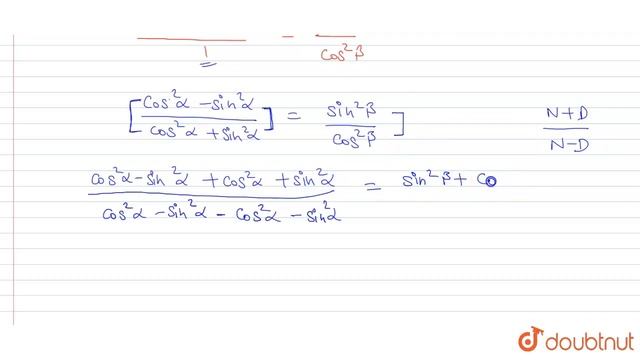 1 - cos²β
[cos²α - sin²α / cos²α + sin²α] = sin²β / cos²β]
N+D / N-D
cos²α - sin²α + cos²α + sin²α / cos²α - sin²α - cos²α - sin²α = sin²β + Co
doubtnut